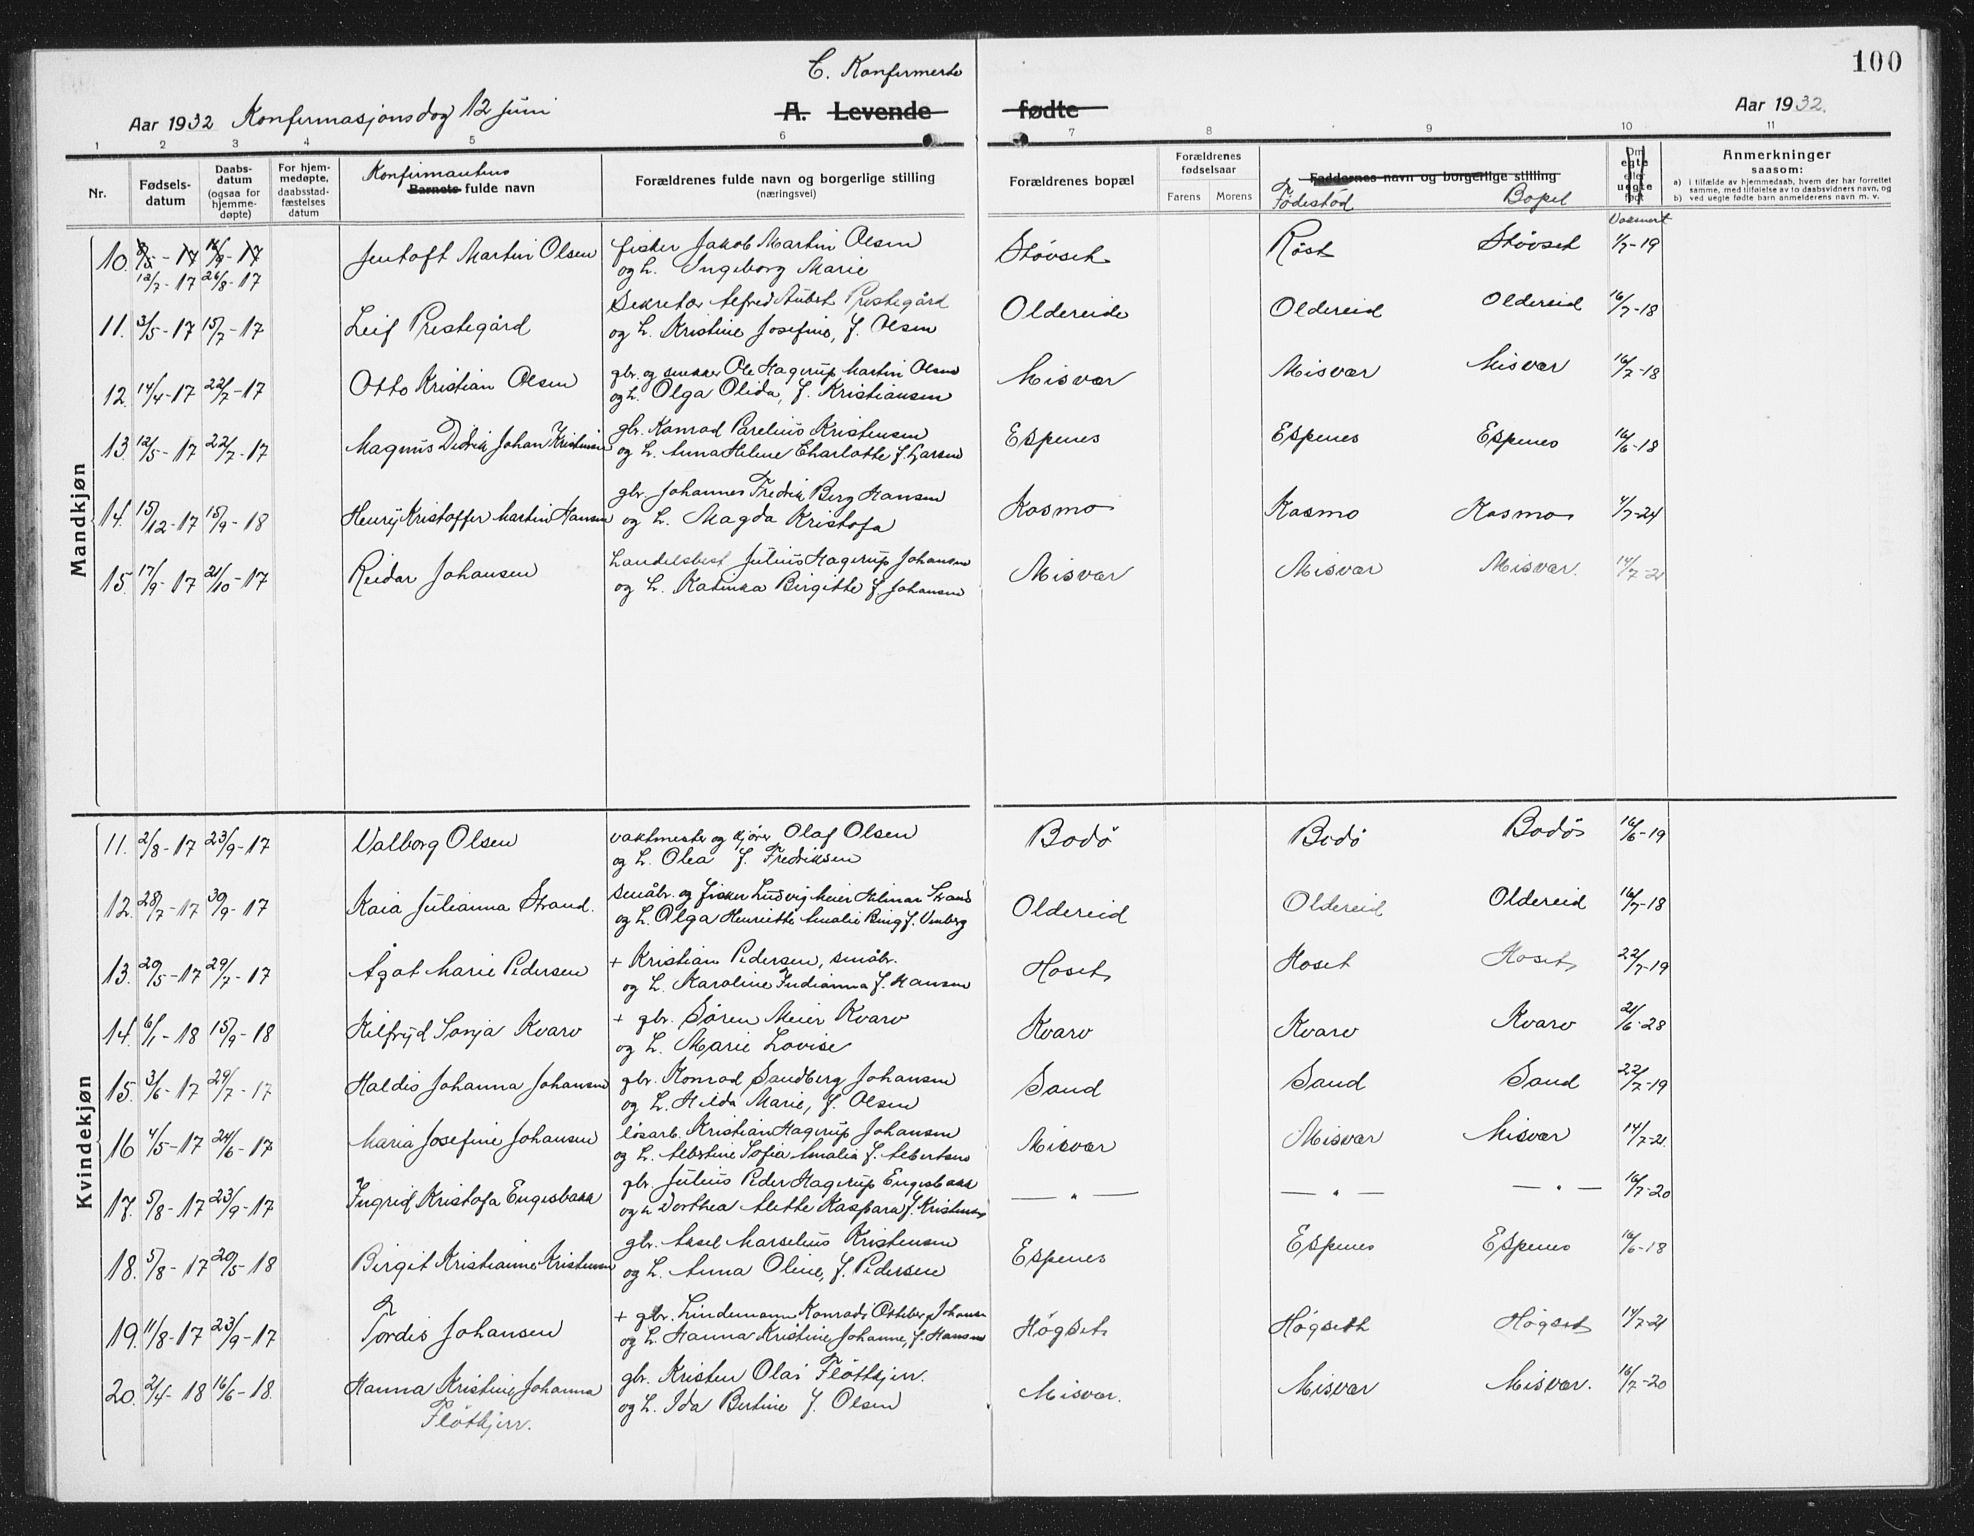 100
C. Konfirmerte
Aar 1932 Konfirmasjonsdag 12 Juni
A. Levende fødte
Aar 1932.
1 2 3 4 5 6 7 8 9 10 11
Nr.
Fødsels-
datum
Daabs-
datum
(ogsaa for
hjemme-
døpte)
For hjem-
medøpte,
daabsstad-
fæstelses
datum
Konfirmantens
Barnets fulde navn
Forældrenes fulde navn og borgerlige stilling
(næringsvei)
Forældrenes bopæl
Forældrenes
fødselsaar
Farens Morens
Faddernes navn og borgerlige stilling
Fødested Bopel
Om
egte
eller
uegte
født
Anmerkninger
saasom:
a) i tilfælde av hjemmedaab, hvem der har forrettet
samme, med tilføielse av to daabsvidners navn, og
b) ved uegte fødte barn anmelderens navn m. v.
Mandkjøn
10. 12/7-17 26/8-17 Jentoft Martin Olsen fisker Jakob Martin Olsen Støvset Røst Støvset 1/7-19
og h. Ingeborg Marie
Sekretær Alfred Aubert Prestegård
11. 3/5-17 15/7-17 Leif Prestegård og h. Kristine Josefine, f. Olsen Oldereide Oldereid Oldereid 16/7-18
gbr. og snekker Ole Hagerup Martin Olsen
12. 14/4-17 22/7-17 Otto Kristian Olsen og h. Olga Olida, f. Kristiansen Misvær Misvær Misvær 16/7-18
gbr. Konrad Parelius Kristensen
13. 12/5-17 22/7-17 Magnus Didrik Johan Kristensen og h. Anna Helene Charlotte f. Larsen Espenes Espenes Espenes 16/6-18
gbr. Johannes Fredrik Berg Hansen
14. 15/12-17 15/9-18 Henry Kristoffer Martin Hansen og h. Magda Kristofa Kosmo Kosmo Kosmo 4/7-24
Handelsbest. Julius Hagerup Johansen
15. 17/9-17 21/10-17 Reidar Johansen og h. Katinka Birgitte f. Johansen Misvær Misvær Misvær. 14/7-21
Kvindekjøn
11. 2/8-17 23/9-17 Valborg Olsen vaktmester og kjører Olaf Olsen Bodø Bodø Bodø 16/6-19
og h. Olea f. Fredriksen
12. 28/7-17 30/9-17 Kaia Julianna Strand. småbr. og fisker Ludvig Meier Hilmar Strand Oldereid Oldereid Oldereid 16/7-18
og h. Olga Henriette Amalie Bing f.
13. 20/5-17 29/7-17 Ågot Marie Pedersen + Kristian Pedersen, småbr. Hoset Hoset Hoset 22/7-19
og h. Karoline Indianna f. Hansen
14. 6/1-18 15/9-18 Hilfryd Sonja Kvarv + gbr. Søren Meier Kvarv Kvarv Kvarv Kvarv 21/6-28
og h. Marie Lovise
15. 3/6-17 29/7-17 Haldis Johanna Johansen gbr. Konrad Sandberg Johansen Sand Sand Sand 22/7-19
og h. Hilda Marie, f. Olsen
16 4/5-17 24/6-17 Maria Josefine Johansen løsarb. Kristian Hagerup Johansen Misvær Misvær Misvær 14/7-21
og h. Albertine Sofia Amalia f. Albertsen
17. 5/8-17 23/9-17 Ingrid Kristofa Engesbakk gbr. Julius Peder Hagerup Engesbakk — " — — " — — " — 16/7-20
og h. Dorthea Alette Kaspara f. Kristensen
18. 5/8-17 20/5-18 Birgit Kristianne Kristensen gbr. Aksel Marselius Kristensen Espenes Espenes Espenes 16/6-18
og h. Anna Oline, f. Pedersen
19. 11/8-17 23/9-17 Tordis Johansen + gbr. Lindemann Konradi Johansen Høgset Høgseth Høgset 14/7-21
og h. Hanna Kristine Johanne, f. Hansen
20. 2/4-18 16/6-18. Hanna Kristine Johanna gbr. Kristen Olai Fløtkjerr. Misvær. Misvær Misvær. 16/7-20
Fløtkjerr. og h. Ida Bertine f. Olsen